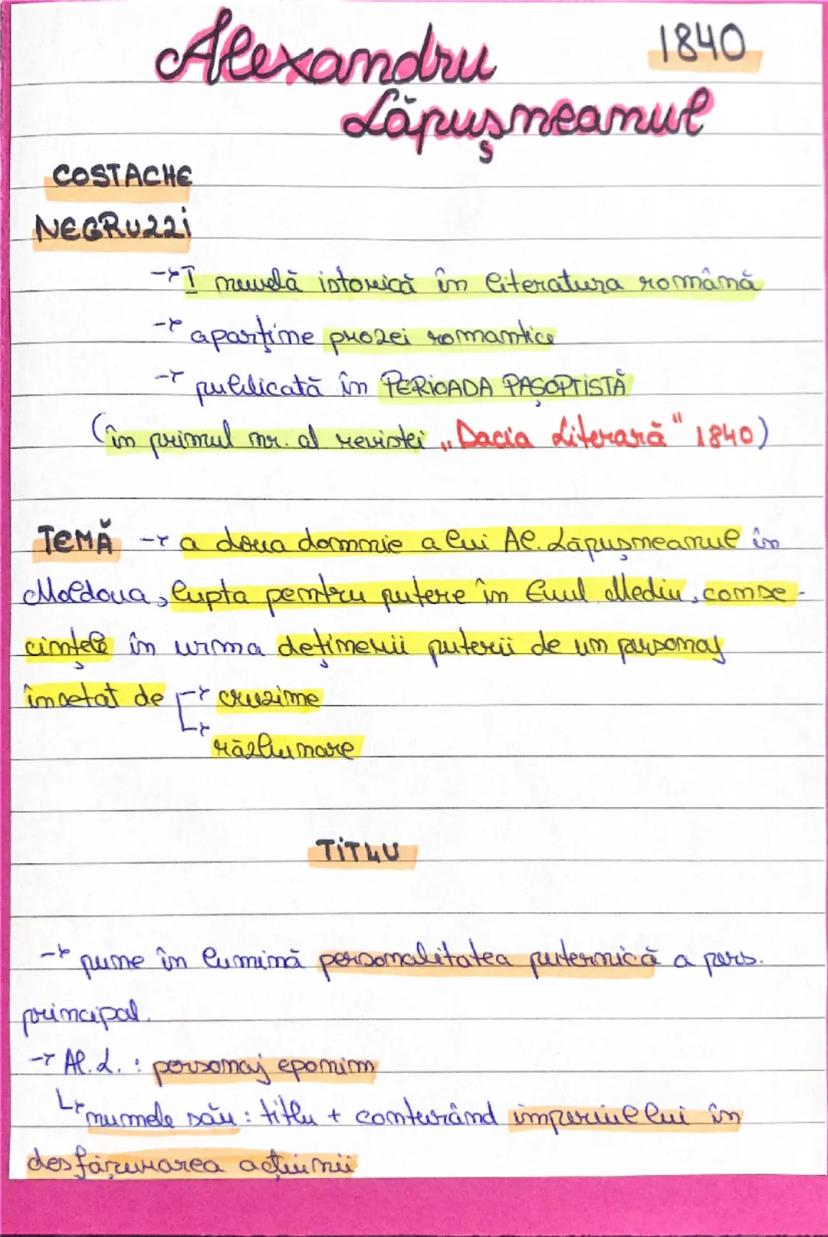 Alexandru 1840
Lăpușneanul
COSTACHE
NEGRUZZI
→ I nuvelă istorică în literatura română
→ aparține prozei romantice
→ publicată în PERIOADA PAȘOPTISTĂ
(în primul nr. al revistei „Dacia Literară" 1840)
TEMĂ → a doua domnie a lui Al. Lăpușneanul în
Moldova, lupta pentru putere în Evul Mediu, conse-
cințele în urma deținerii puterii de un personaj
însetat de → cruzime
→ răzbunare
TITLU
→ pune în lumină personalitatea puternică a pers.
principal.
→ Al. L. : personaj eponim
→ numele său : titlu + conturând imperiul lui în
desfășurarea acțiunii